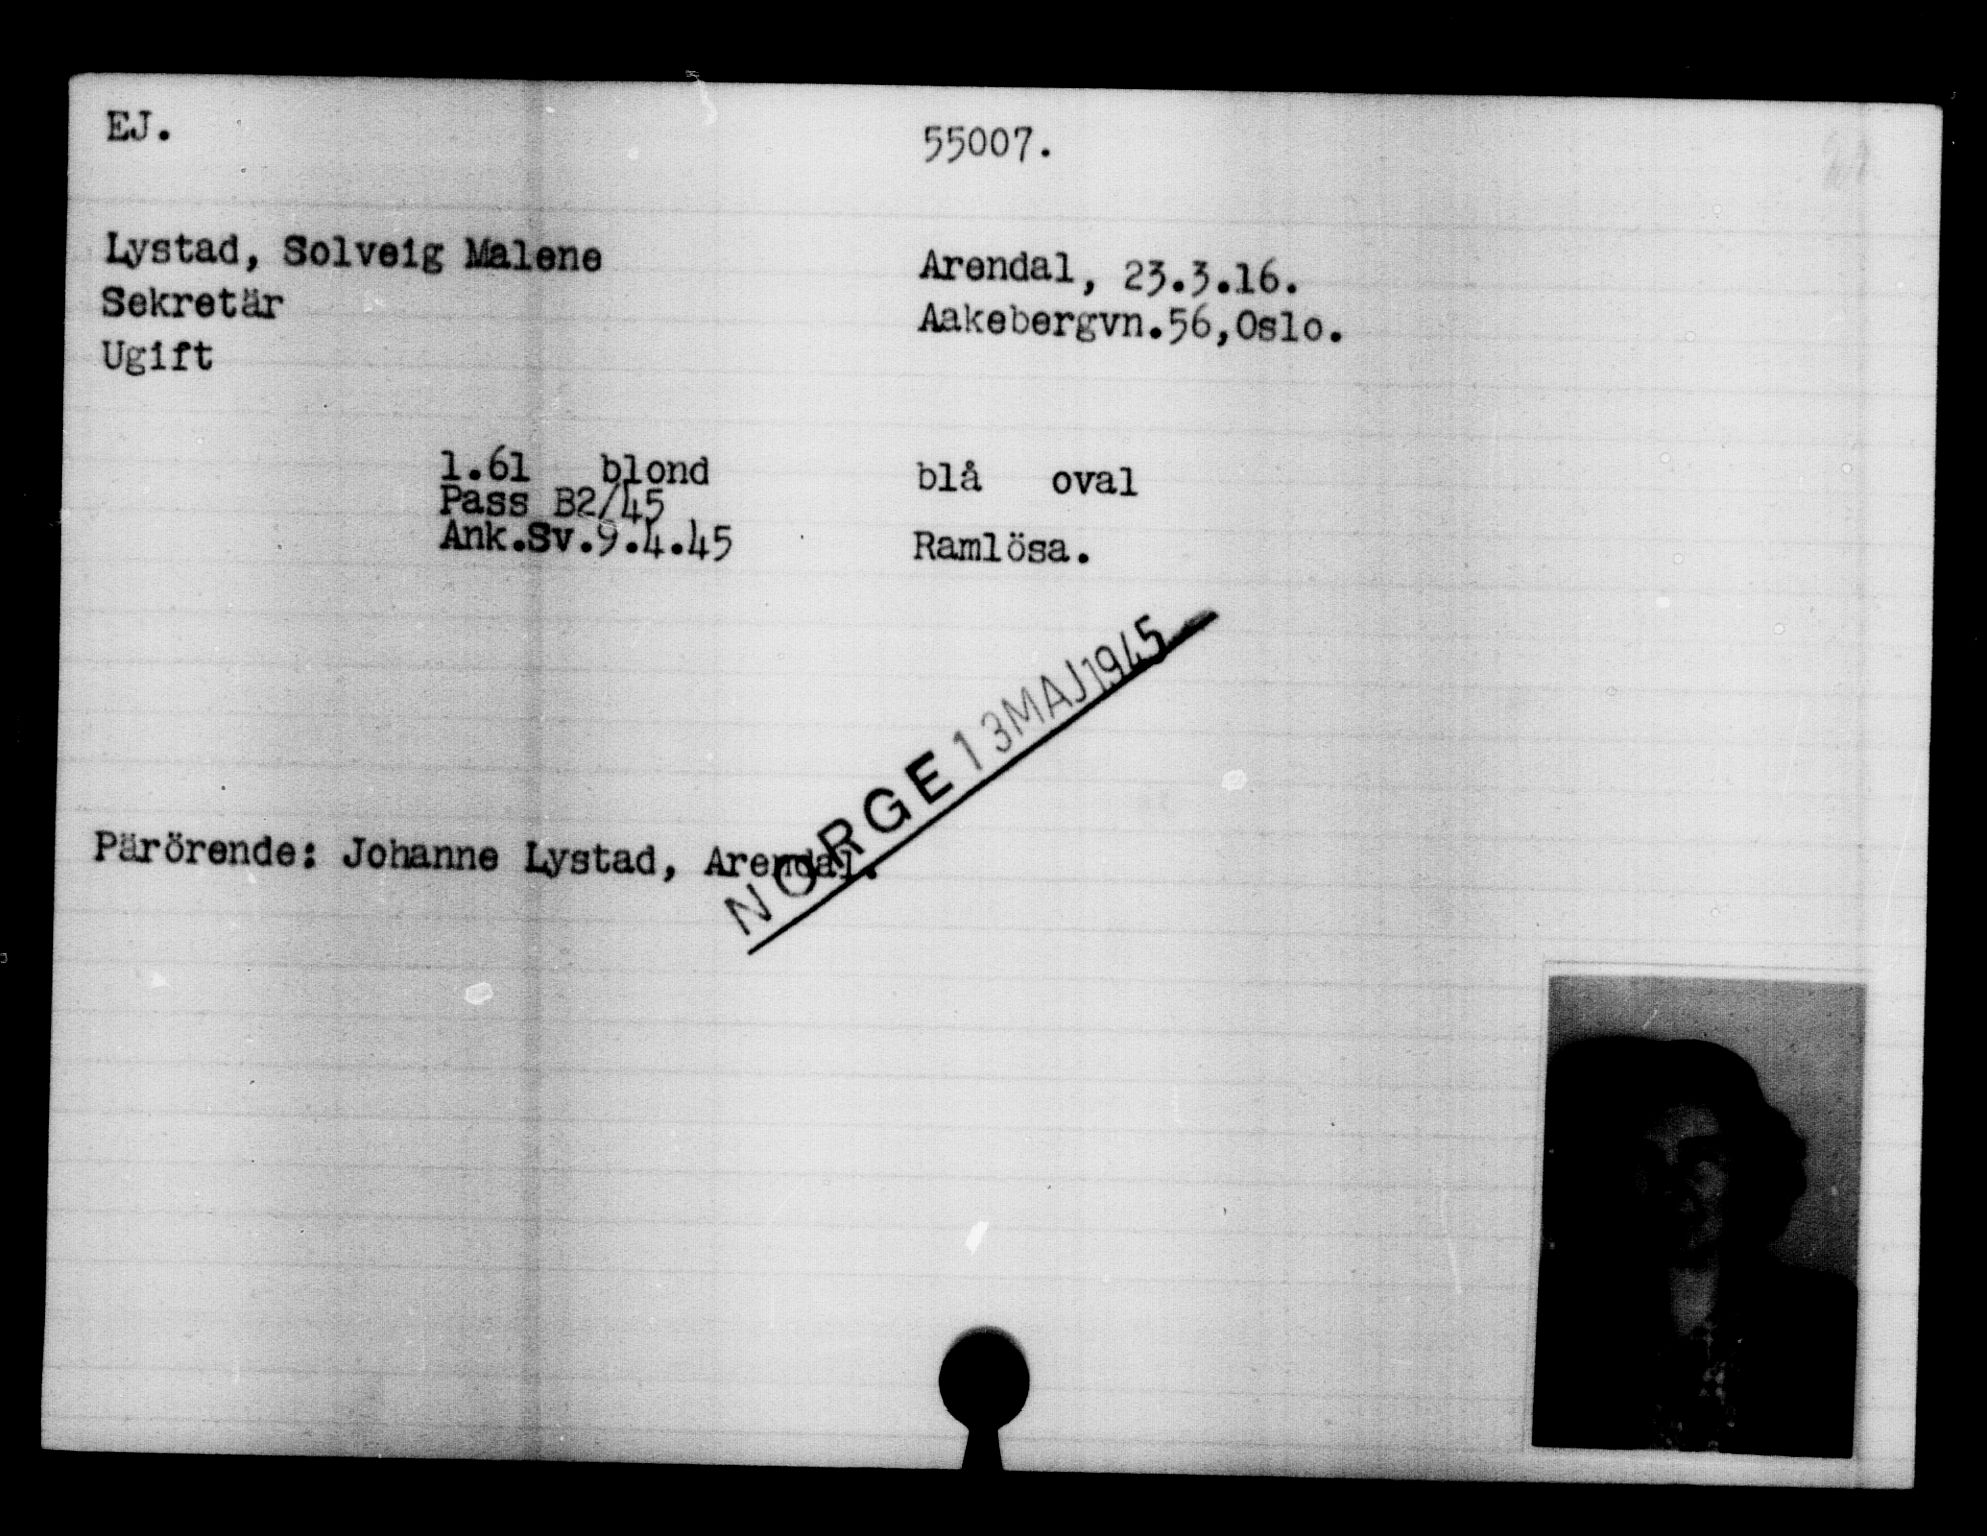 EJ. 55007.
Lystad, Solveig Malene Arendal, 23.3.16.
Sekretär Aakebergvn.56,Oslo.
Ugift
1.61 blond blå oval
Pass B2/45
Ank.Sv.9.4.45 Ramlösa.
NORGE 13 MAJ 1945
Pärörende: Johanne Lystad, Arendal.